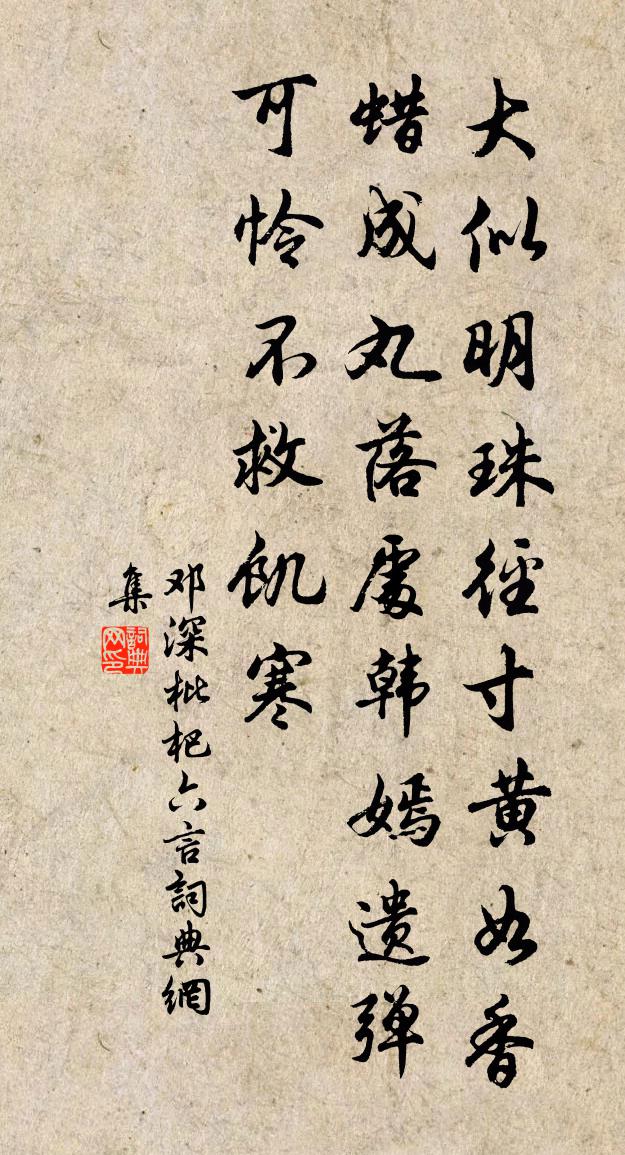 大似明珠徑寸黄如香
蜡成丸落處韩嫣遗彈
可怜不救飢寒
邓深枇杷六言詞典網
集
詞典网印